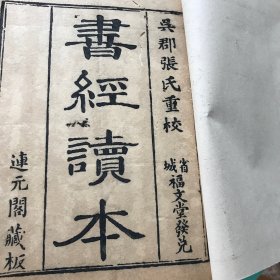 吳郡張氏重校
省城福文堂發兌
書經讀本
連元閣藏板